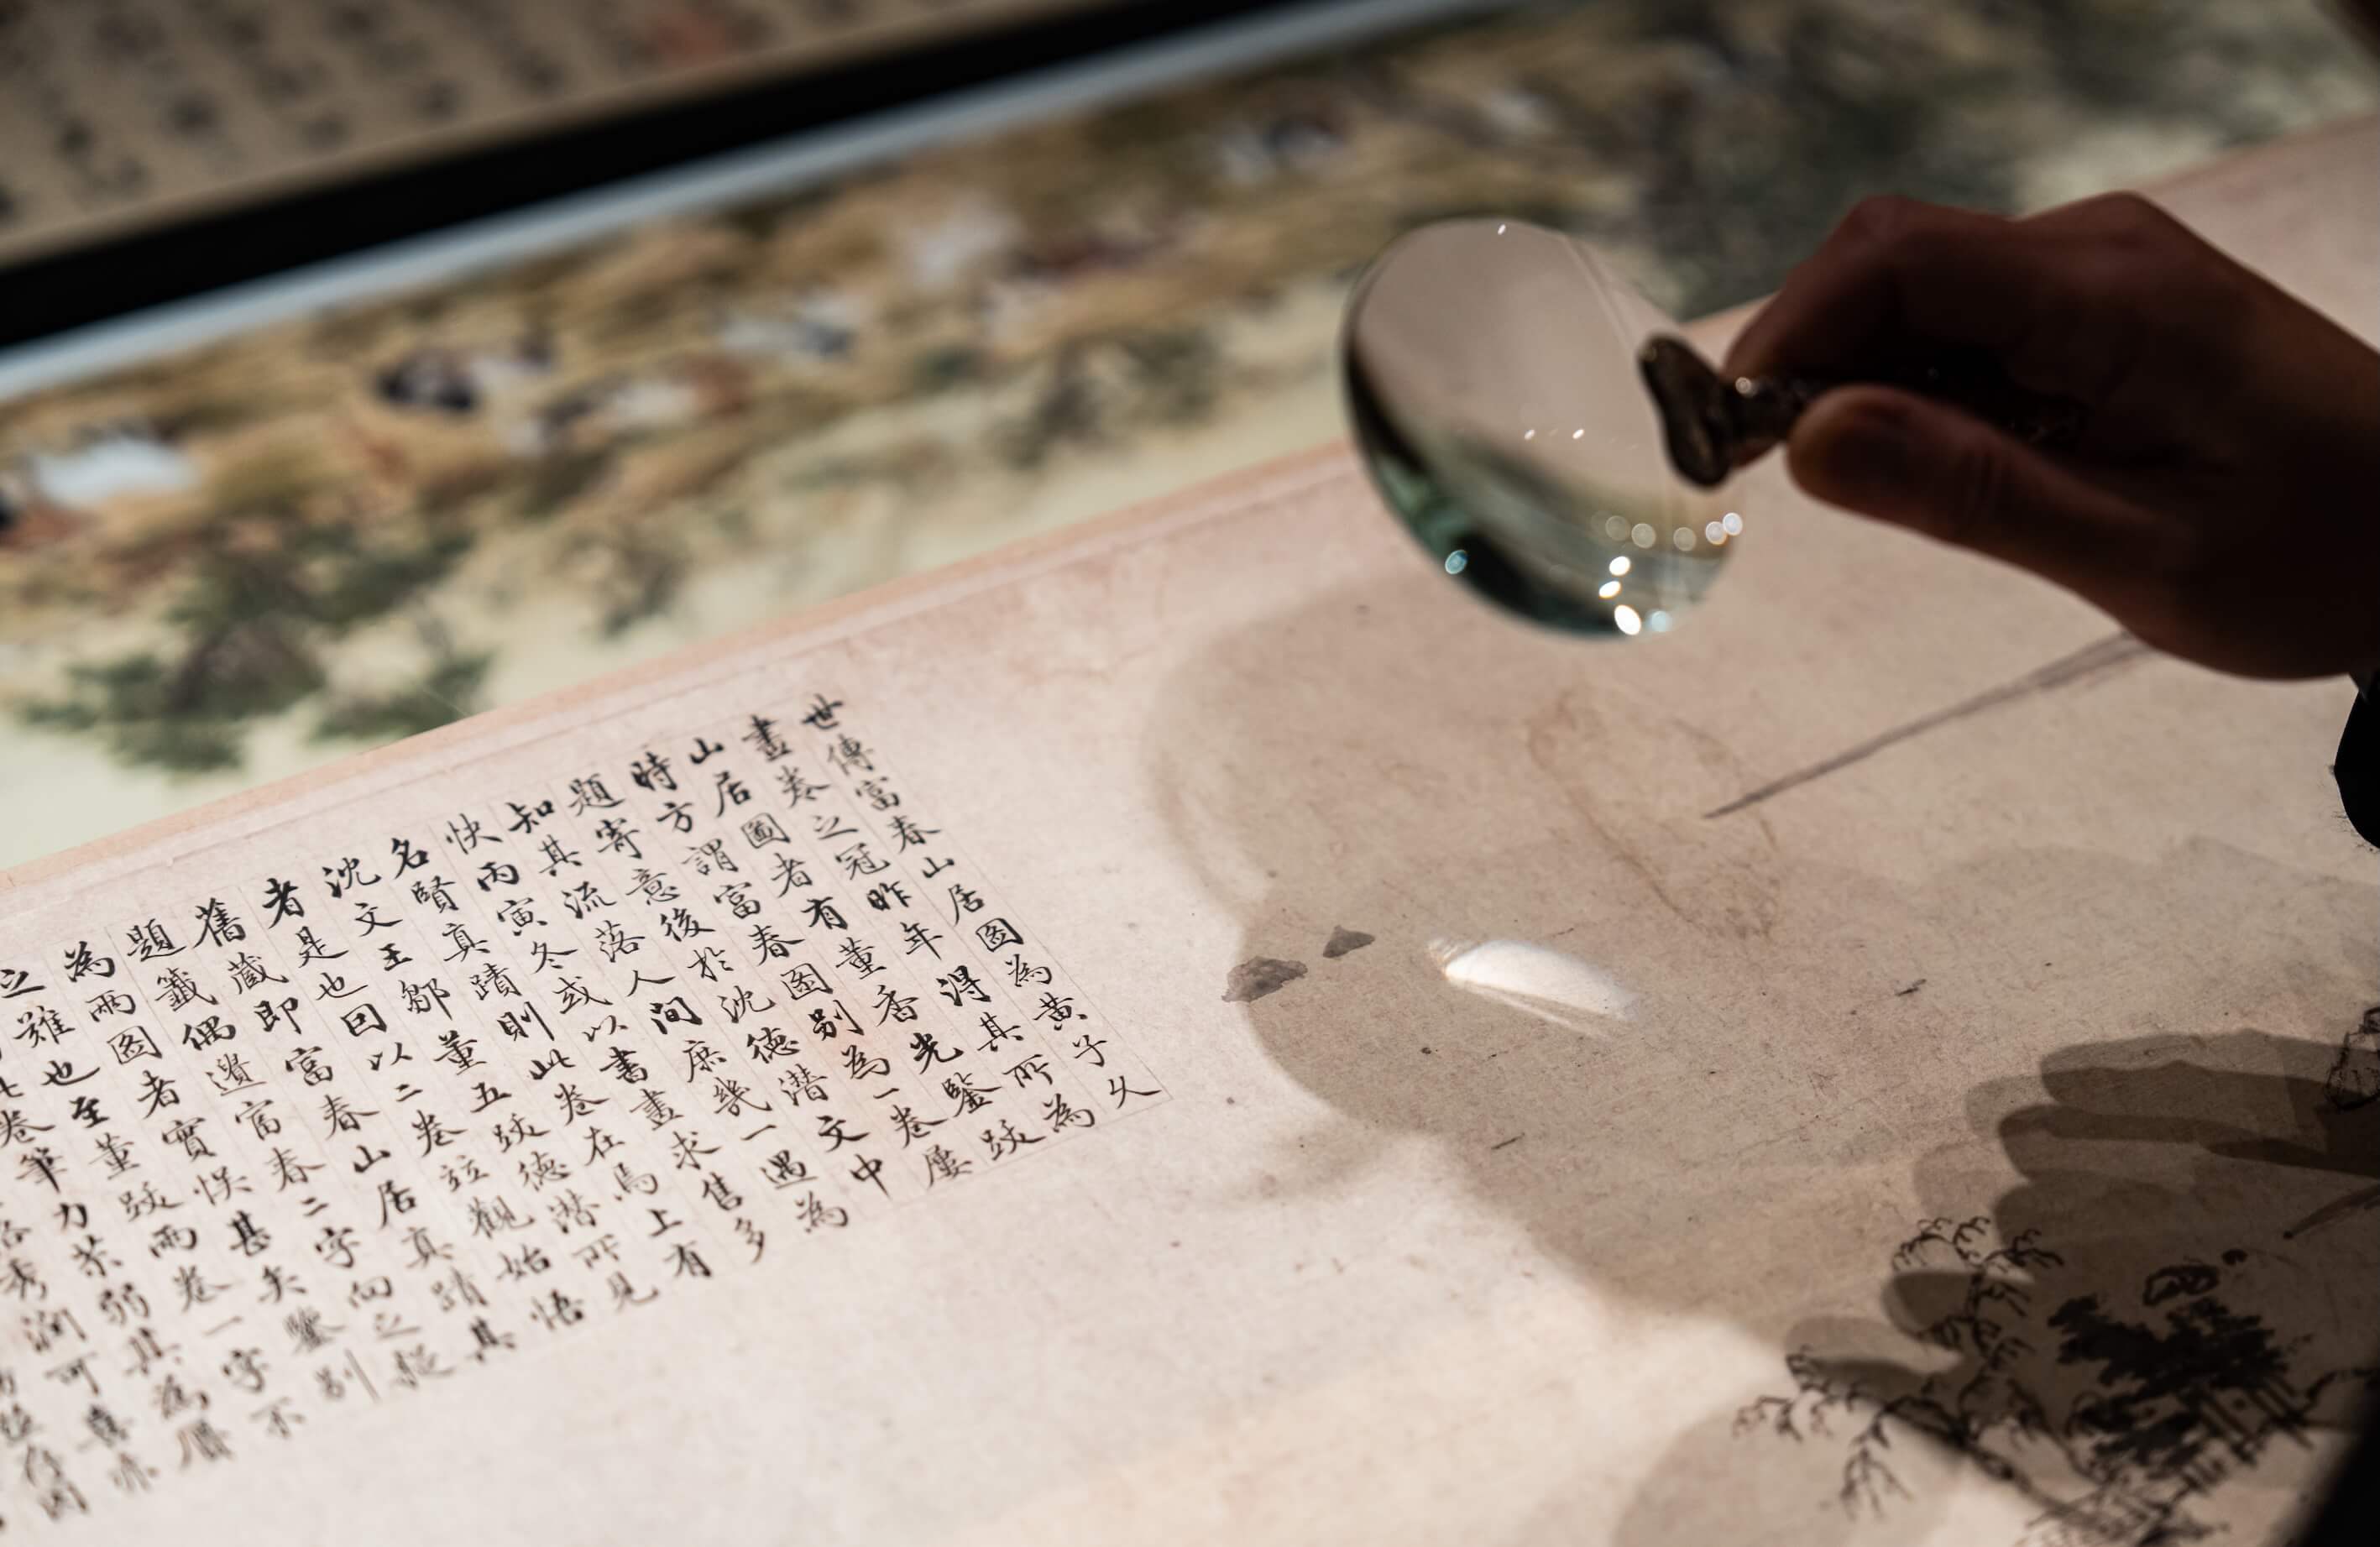 世傳富春山居圖為黃子久
畫卷之冠昨年得其所為
山居圖者有董香光鑒跋
時方謂富春圖別為一卷屢
題寄意後於沈德潛文中
知其流落人間庶幾一遇為
快丙寅冬或以書畫求售多
名賢真蹟則此卷在焉上有
沈文王鄒董五跋德潛所見
者是也因以二卷竝觀始悟
舊藏即富春山居真蹟其
題籤偶遺富春二字向之疑
為兩圖者實悞甚矣鑒別
之難也至董跋兩卷一字不
卷筆力苶弱其為贋
秀潤可喜亦